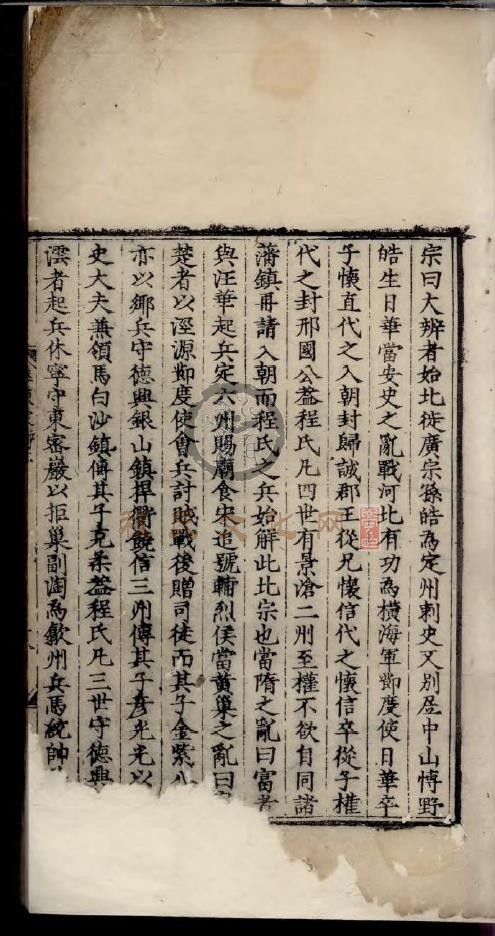 宗曰大辨者始北徙廣宗孫皓為定州刺史又别居中山愽野
皓生日華當安史之亂戰河北有功為横海軍節度使日華卒
子懷直代之入朝封歸誠郡王從兄懷信代之懷信卒從子權
代之封邢國公葢程氏凡四世有景滄二州至權不欲自同諸
藩鎮再請入朝而程氏之兵始解此北宗也當隋之亂曰富者
與汪華起兵定六州賜廟食宋追號輔烈侯當黄巢之亂曰
楚者以涇源節度使會兵討賊戰後贈司徒而其子金紫
亦以鄉兵守德興銀山鎮捍衢饒信三州傳其子彦光光以
史大夫兼領馬白沙鎮傳其子克柔葢程氏凡三世守德興
澐者起兵休寧守東密巖以拒巢副淘為歙州兵馬統帥